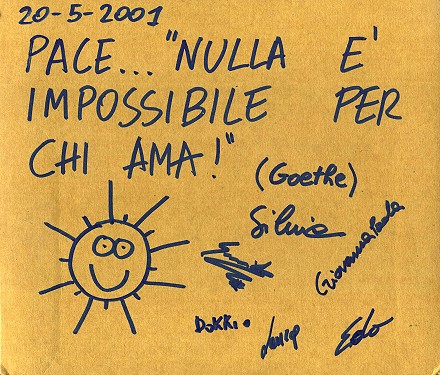 20-5-2001
PACE... "NULLA E'
IMPOSSIBILE PER
CHI AMA!"
(Goethe)
Silvia
Giovanna Paola
Edo